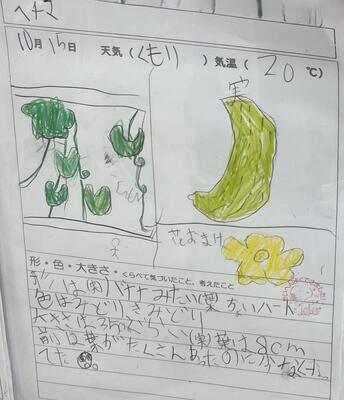 ヘチマ
10月15日 天気(くもり)気温(20℃)
実
花おまけ
形・色・大きさ・くらべて気づいたこと、考えたこと
形は(実)バナナみたい(葉)ちいハート
色はうみどりきみどり
大きさは3cmぐらい(実)葉は8cm
前は葉がたくさんあったのに
てた